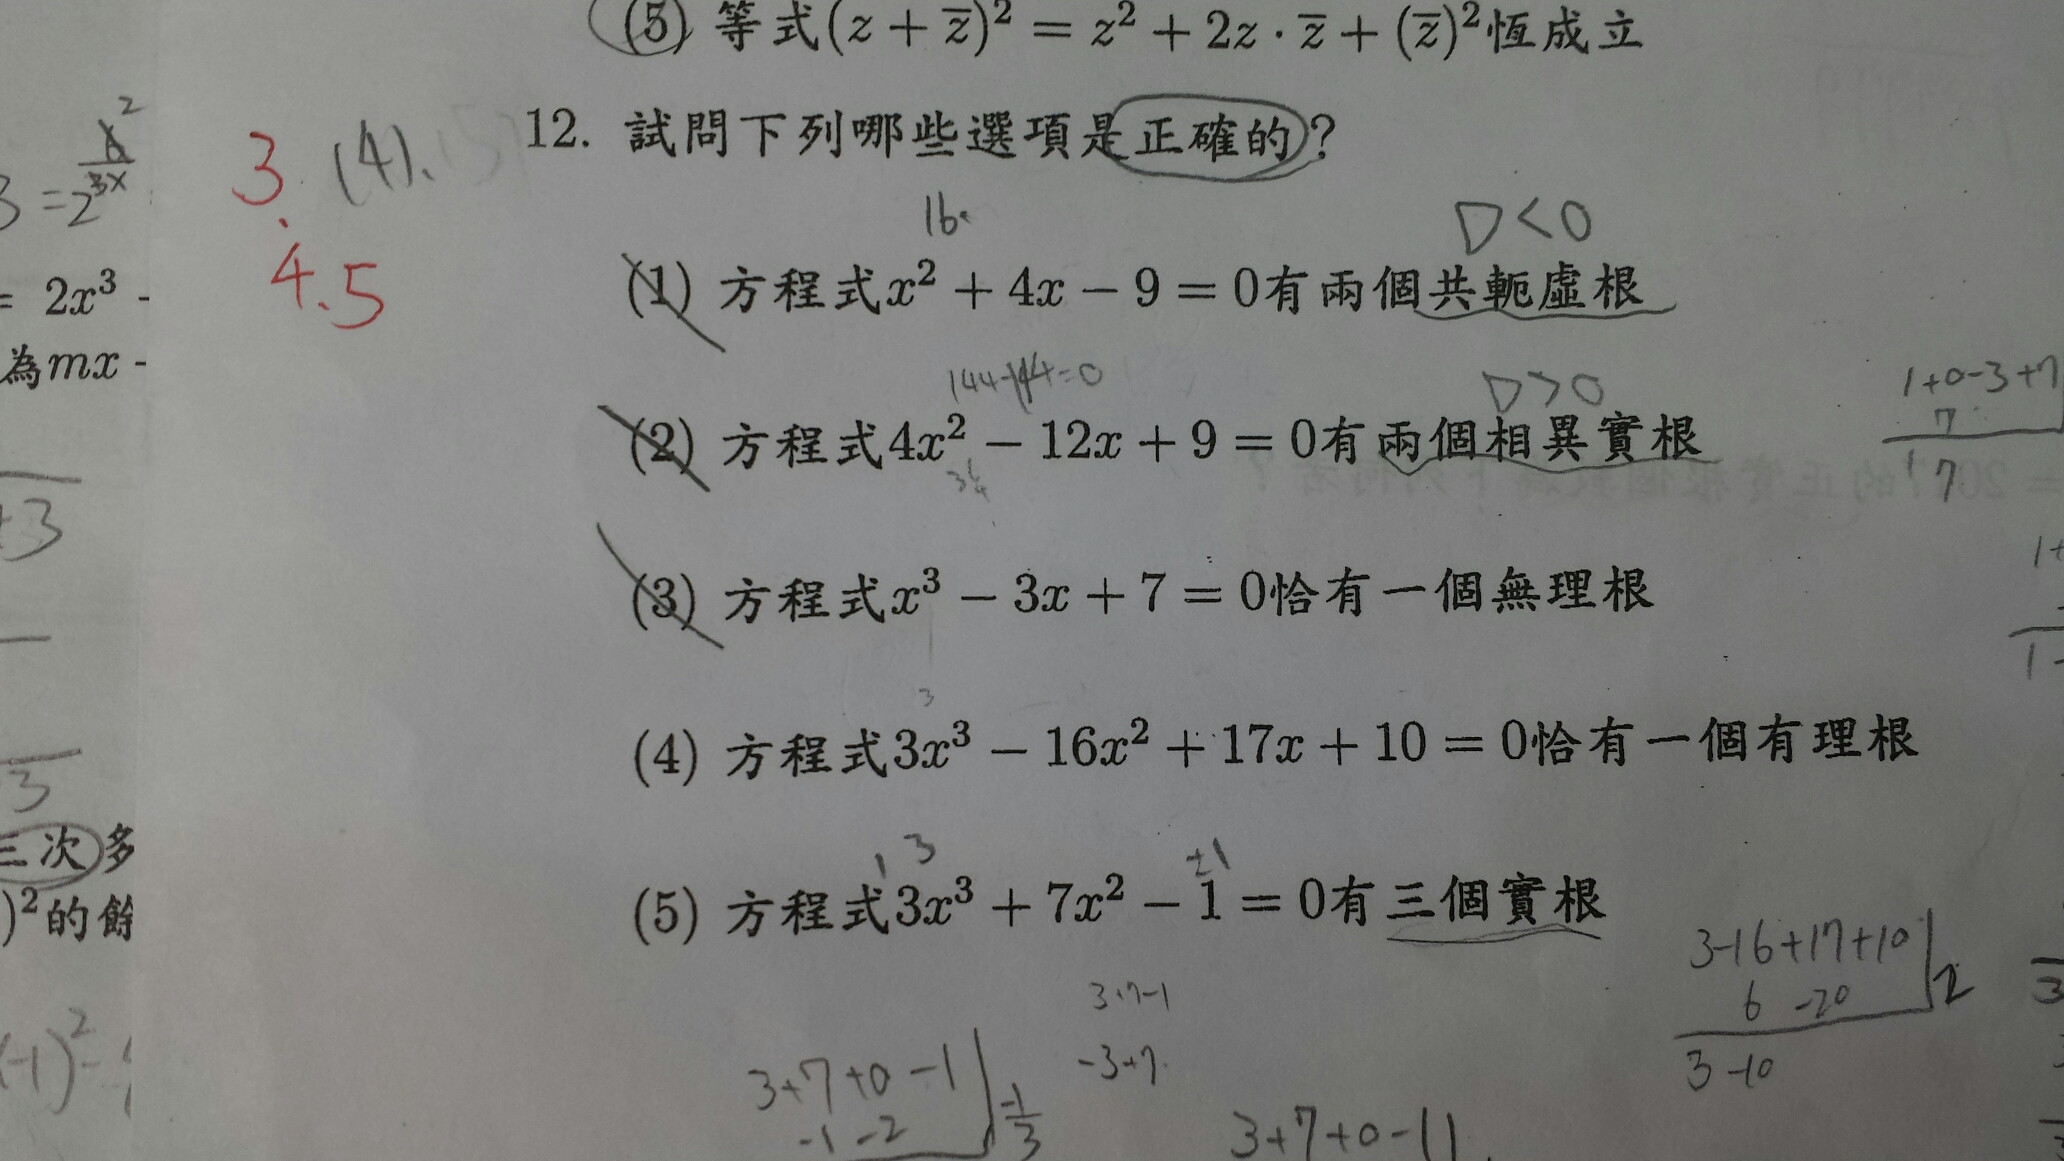 (5) 等式(z + z̄)² = z² + 2z · z̄ + (z̄)²恆成立
12. 試問下列哪些選項是正確的?
3. (4).
4.5
16
D<0
(1) 方程式x² + 4x − 9 = 0有兩個共軛虛根
144-144=0
D>0
(2) 方程式4x² − 12x + 9 = 0有兩個相異實根
1+0-3+7
7
1 7
(3) 方程式x³ − 3x + 7 = 0恰有一個無理根
3
(4) 方程式3x³ − 16x² + 17x + 10 = 0恰有一個有理根
1 3 ±1
(5) 方程式3x³ + 7x² − 1 = 0有三個實根
3-16+17+10 2
6 -20
3 -10
3+7-1
-3+7
3+7+0-1 -1/3
-1 -2
3+7+0-1
= 2x³ -
為mx -
+3
3
三次多
)²的餘
(-1)² -